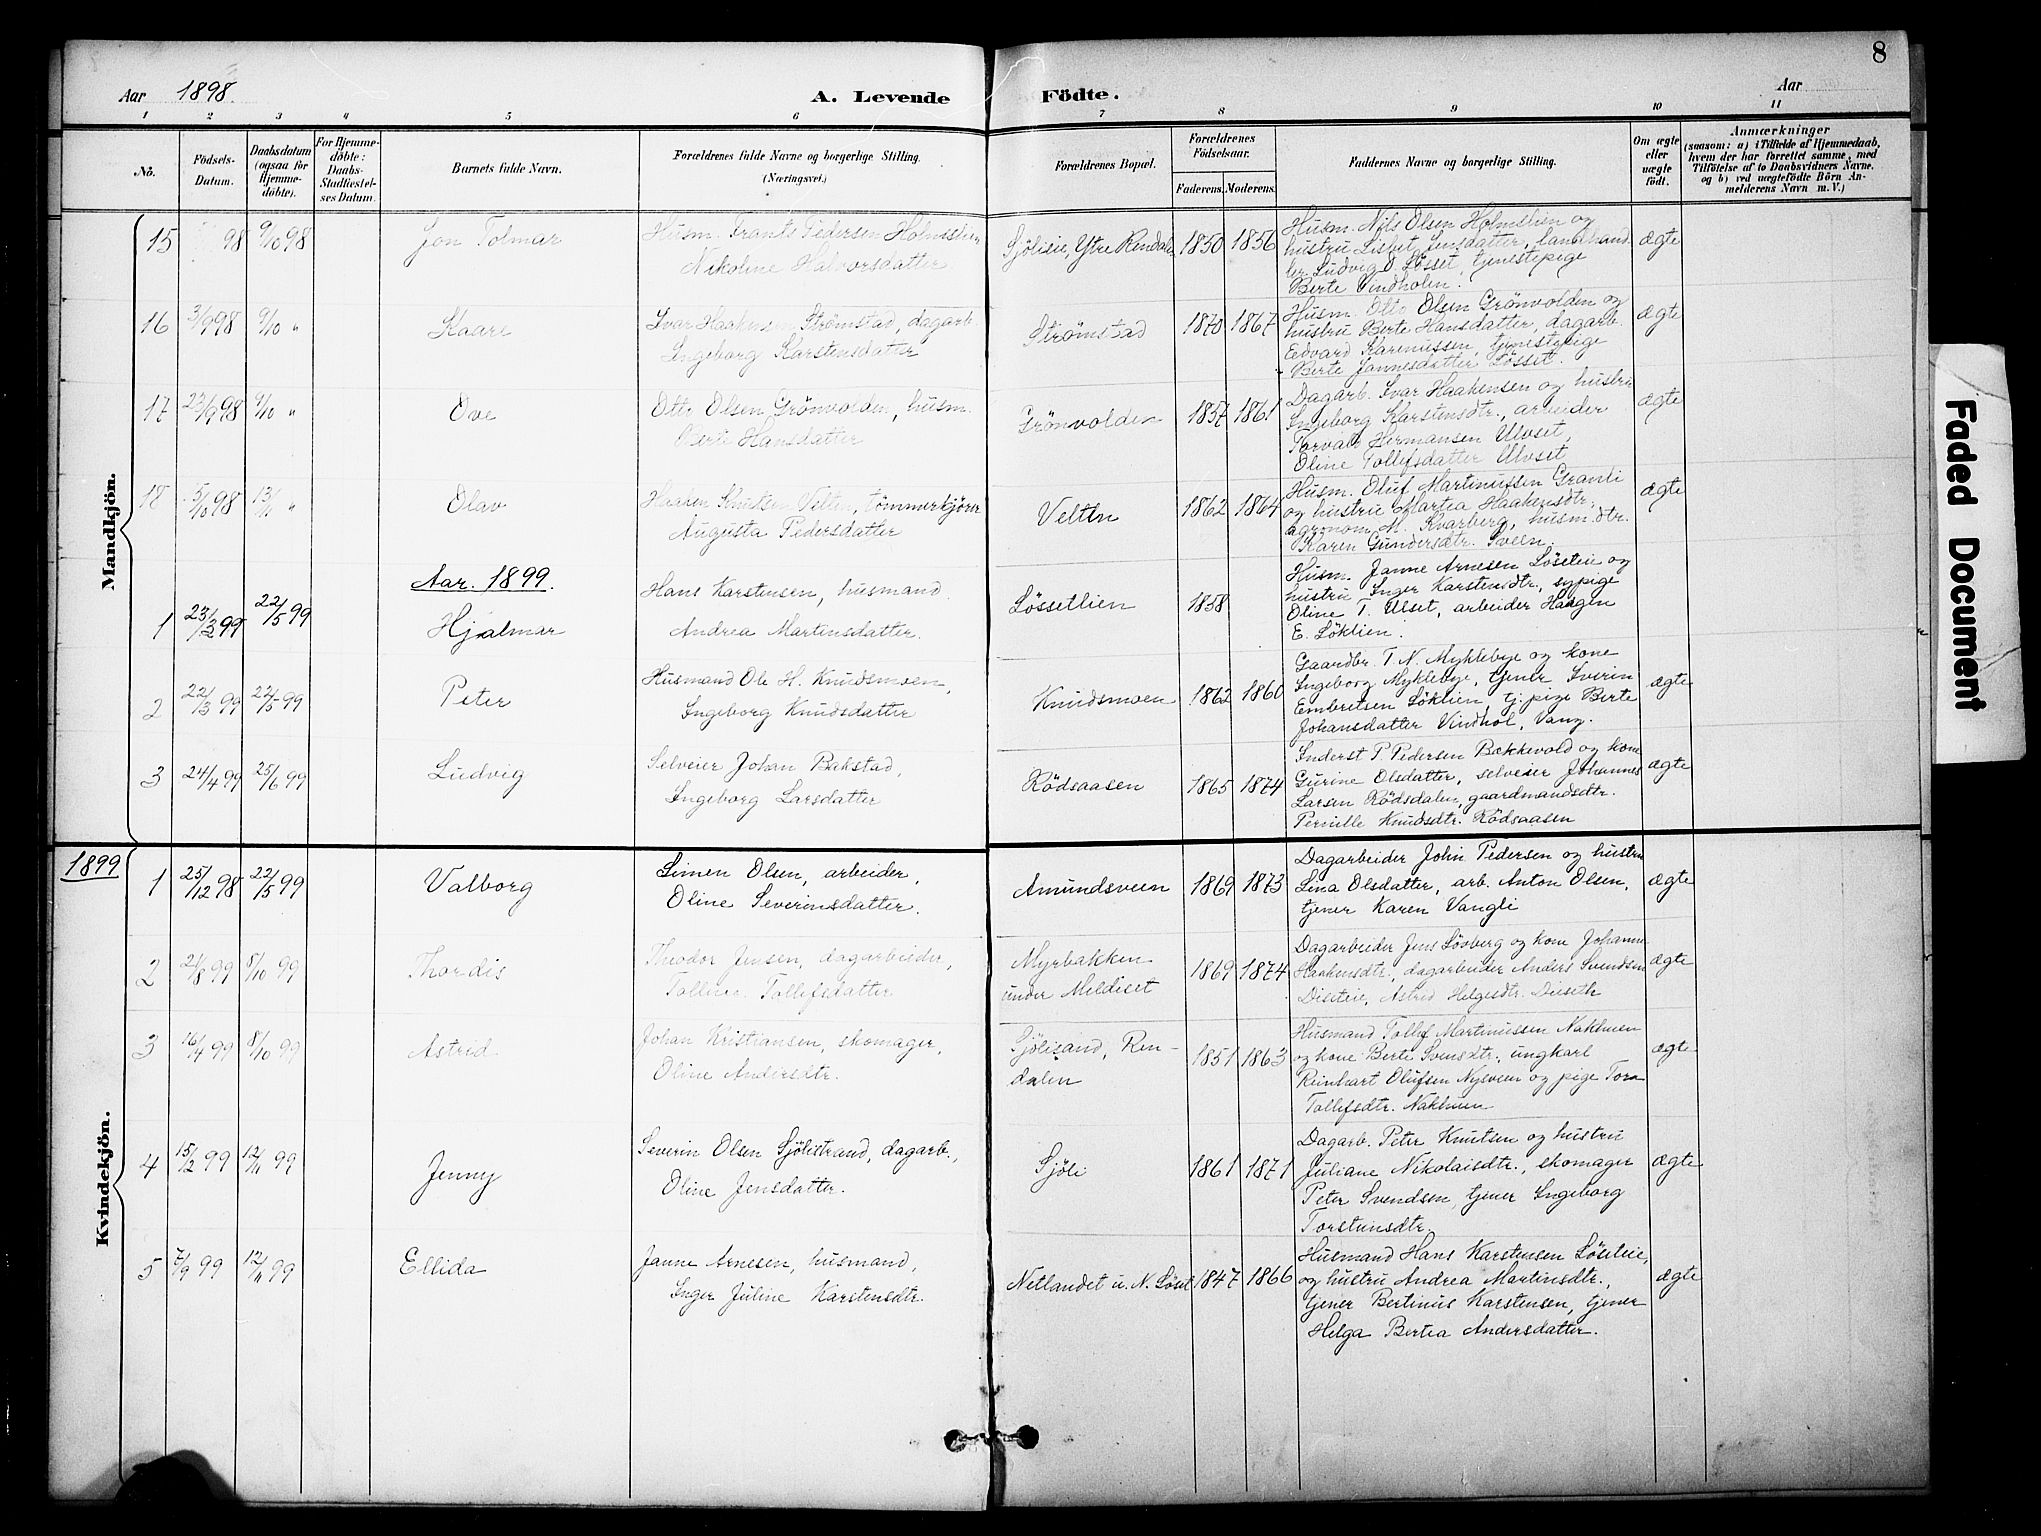 8
Aar 1898.
A. Levende Födte.
Aar
1 2 3 4 5 6 7 8 9 10 11
No.
Födsels-Datum.
Daabsdatum (ogsaa for Hjemme-döbte).
For Hjemme-döbte: Daabs-Stadfæstel-ses Datum.
Barnets fulde Navn.
Forældrenes fulde Navne og borgerlige Stilling.
(Næringsvei.)
Forældrenes Bopæl.
Forældrenes Fødselsaar.
Faderens.
Moderens.
Faddernes Navne og borgerlige Stilling.
Om ægte eller uægte født.
Anmærkninger
(saasom: a) i Tilfælde af Hjemmedaab,
hvem der har forrettet samme, med
Tilföielse af to Daabsvidners Navne.
og b) ved uægtefödte Börn An-
melderens Navn m. V.)
Mandkjön.
15 98 9/10 98 Jon Tolmar
Husm. Frants Pedersen Holmslien
Nikoline Halvorsdatter
Sjöliie, Ytre Rendalen 1850 1856
Husm. Nils Olsen Holmslien og
hustru Lisbet Jensdatter, landhand-
ler Ludvig O. Lösset, tjenestepige
Berte Vindholen.
ægte
16 3/9 98 9/10 " Kaare
Ivar Haakensen Strømstad, dagarb.
Ingeborg Karstensdatter
Strømstad 1870 1867
Husm. Otto Olsen Grönvolden og
hustru Berte Hansdatter, dagarb.
Edvard Karenussen, tjenestepige
Berte Jannesdatter Lösset.
ægte
17 23/9 98 9/10 " Ove
Otto Olsen Grönvolden, husm.
Berte Hansdatter
Grönvolden 1857 1861
Dagarb. Ivar Haakensen og hustru
Ingeborg Karstensdtr., arbeider
Torvald Hermansen Ulvset,
Oline Tollefsdatter Ulvset
ægte
18 5/10 98 13/11 " Olav
Haaken Knutsen Velten, tömmerkjörer
Augusta Pedersdatter
Velten 1862 1864
Husm. Oluf Martinussen Granli
og hustru Martea Haakensdtr.,
agronom M. Kvarberg, husm.dtr.
Karen Gundersdtr. Sveen.
ægte
Aar. 1899.
1 23/3 99 22/5 99 Hjalmar
Hans Karstensen, husmand.
Andrea Martinsdatter.
Lössetlien 1858
Husm. Janne Arnesen Löseteie og
hustru Inger Karstensdtr, sypige
Oline T. Ulset, arbeider Haagen
E. Löklien.
2 22/3 99 22/5 99 Peter
Husmand Ole H. Knudsmoen,
Ingeborg Knudsdatter
Knudsmoen 1862 1860
Gaardbr. T. N. Myklebye og kone
Ingeborg Myklebye, tjener Sverin
Embretsen Löklien tj. pige Berte
Johansdatter Vindhol, Vang.
ægte
3 24/4 99 25/6 99 Ludvig
Selveier Johan Bakstad,
Ingeborg Larsdatter
Rödsaasen 1865 1874
Inderst P. Pedersen Bækkevold og kone
Gurine Olsdatter, selveier Johannes
Larsen Rödsdalen, gaardmandsdtr.
Pernille Knudsdtr. Rödsaasen
ægte
1899
Kvindekjön.
1 25/12 98 22/5 99 Valborg
Simen Olsen, arbeider,
Oline Severinsdatter.
Amundsveen 1869 1873
Dagarbeider John Pedersen og hustru
Lina Olsdatter, arb. Anton Olsen,
tjener Karen Vangli
ægte
2 2/8 99 8/10 99 Thordis
Theodor Jensen, dagarbeider,
Tolline Tollefsdatter
Myrbakken
under Meldiset 1869 1874
Dagarbeider Jens Lövberg og kone Johanne
Haakensdtr., dagarbeider Anders Svendsen
Diseteie, Astrid Helgesdtr. Diseth
ægte
3 16/4 99 8/10 99 Astrid
Johan Kristiansen, skomager,
Oline Andersdtr.
Sjölisand, Ren-
dalen 1851 1863
Husmand Tollef Martinussen Nakhuen
og kone Berte Svensdtr., ungkarl
Reinhart Olufsen Nysveen og pige Tora
Tollefsdtr. Nakhuen
ægte
4 15/2 99 12/11 99 Jenny
Severin Olsen Sjölistrand, dagarb.,
Oline Jensdatter.
Sjöli 1861 1871
Dagarb. Peter Knutsen og hustru
Juliane Nikolaisdtr., skomager
Peter Svendsen, tjener Ingeborg
Torstensdtr.
ægte
5 7/9 99 12/11 99 Ellida
Janne Arnesen, husmand,
Inger Juline Karstensdtr.
Netlandet u. N. Löset 1847 1866
Husmand Hans Karstensen Löseteie,
og hustru Andrea Martinsdtr.,
tjener Bertinus Karstensen, tjener
Helga Bertea Andersdatter.
ægte
Faded Document